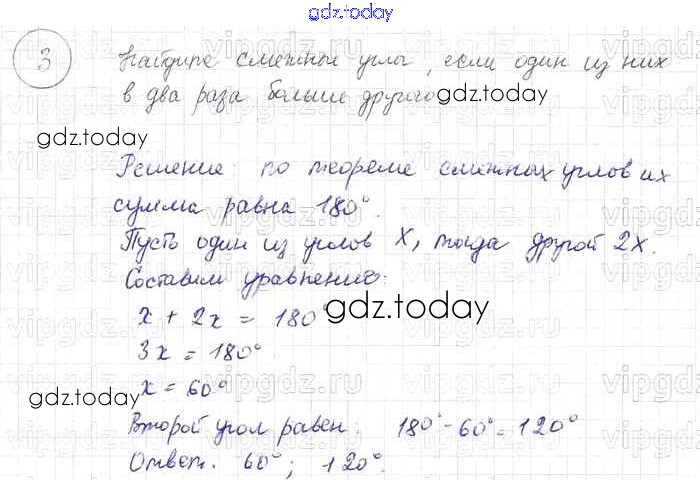 gdz.today
3 Найдите смежные углы, если один из них
в два раза больше другого. gdz.today
gdz.today
Решение: по теореме смежных углов их
сумма равна 180°.
Пусть один из углов x, тогда другой 2x.
Составим уравнение:
x + 2x = 180°
gdz.today
3x = 180°
x = 60°
gdz.today
Второй угол равен: 180° - 60° = 120°
Ответ. 60°; 120°.
vipgdz.ru